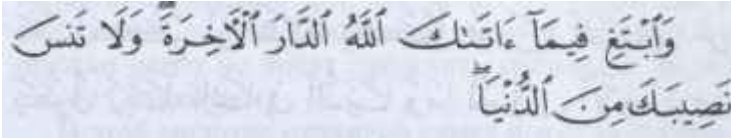 وَٱبۡتَغِ فِيمَآ ءَاتَىٰكَ ٱللَّهُ ٱلدَّارَ ٱلۡأٓخِرَةَۖ وَلَا تَنسَ
نَصِيبَكَ مِنَ ٱلدُّنۡيَاۖ